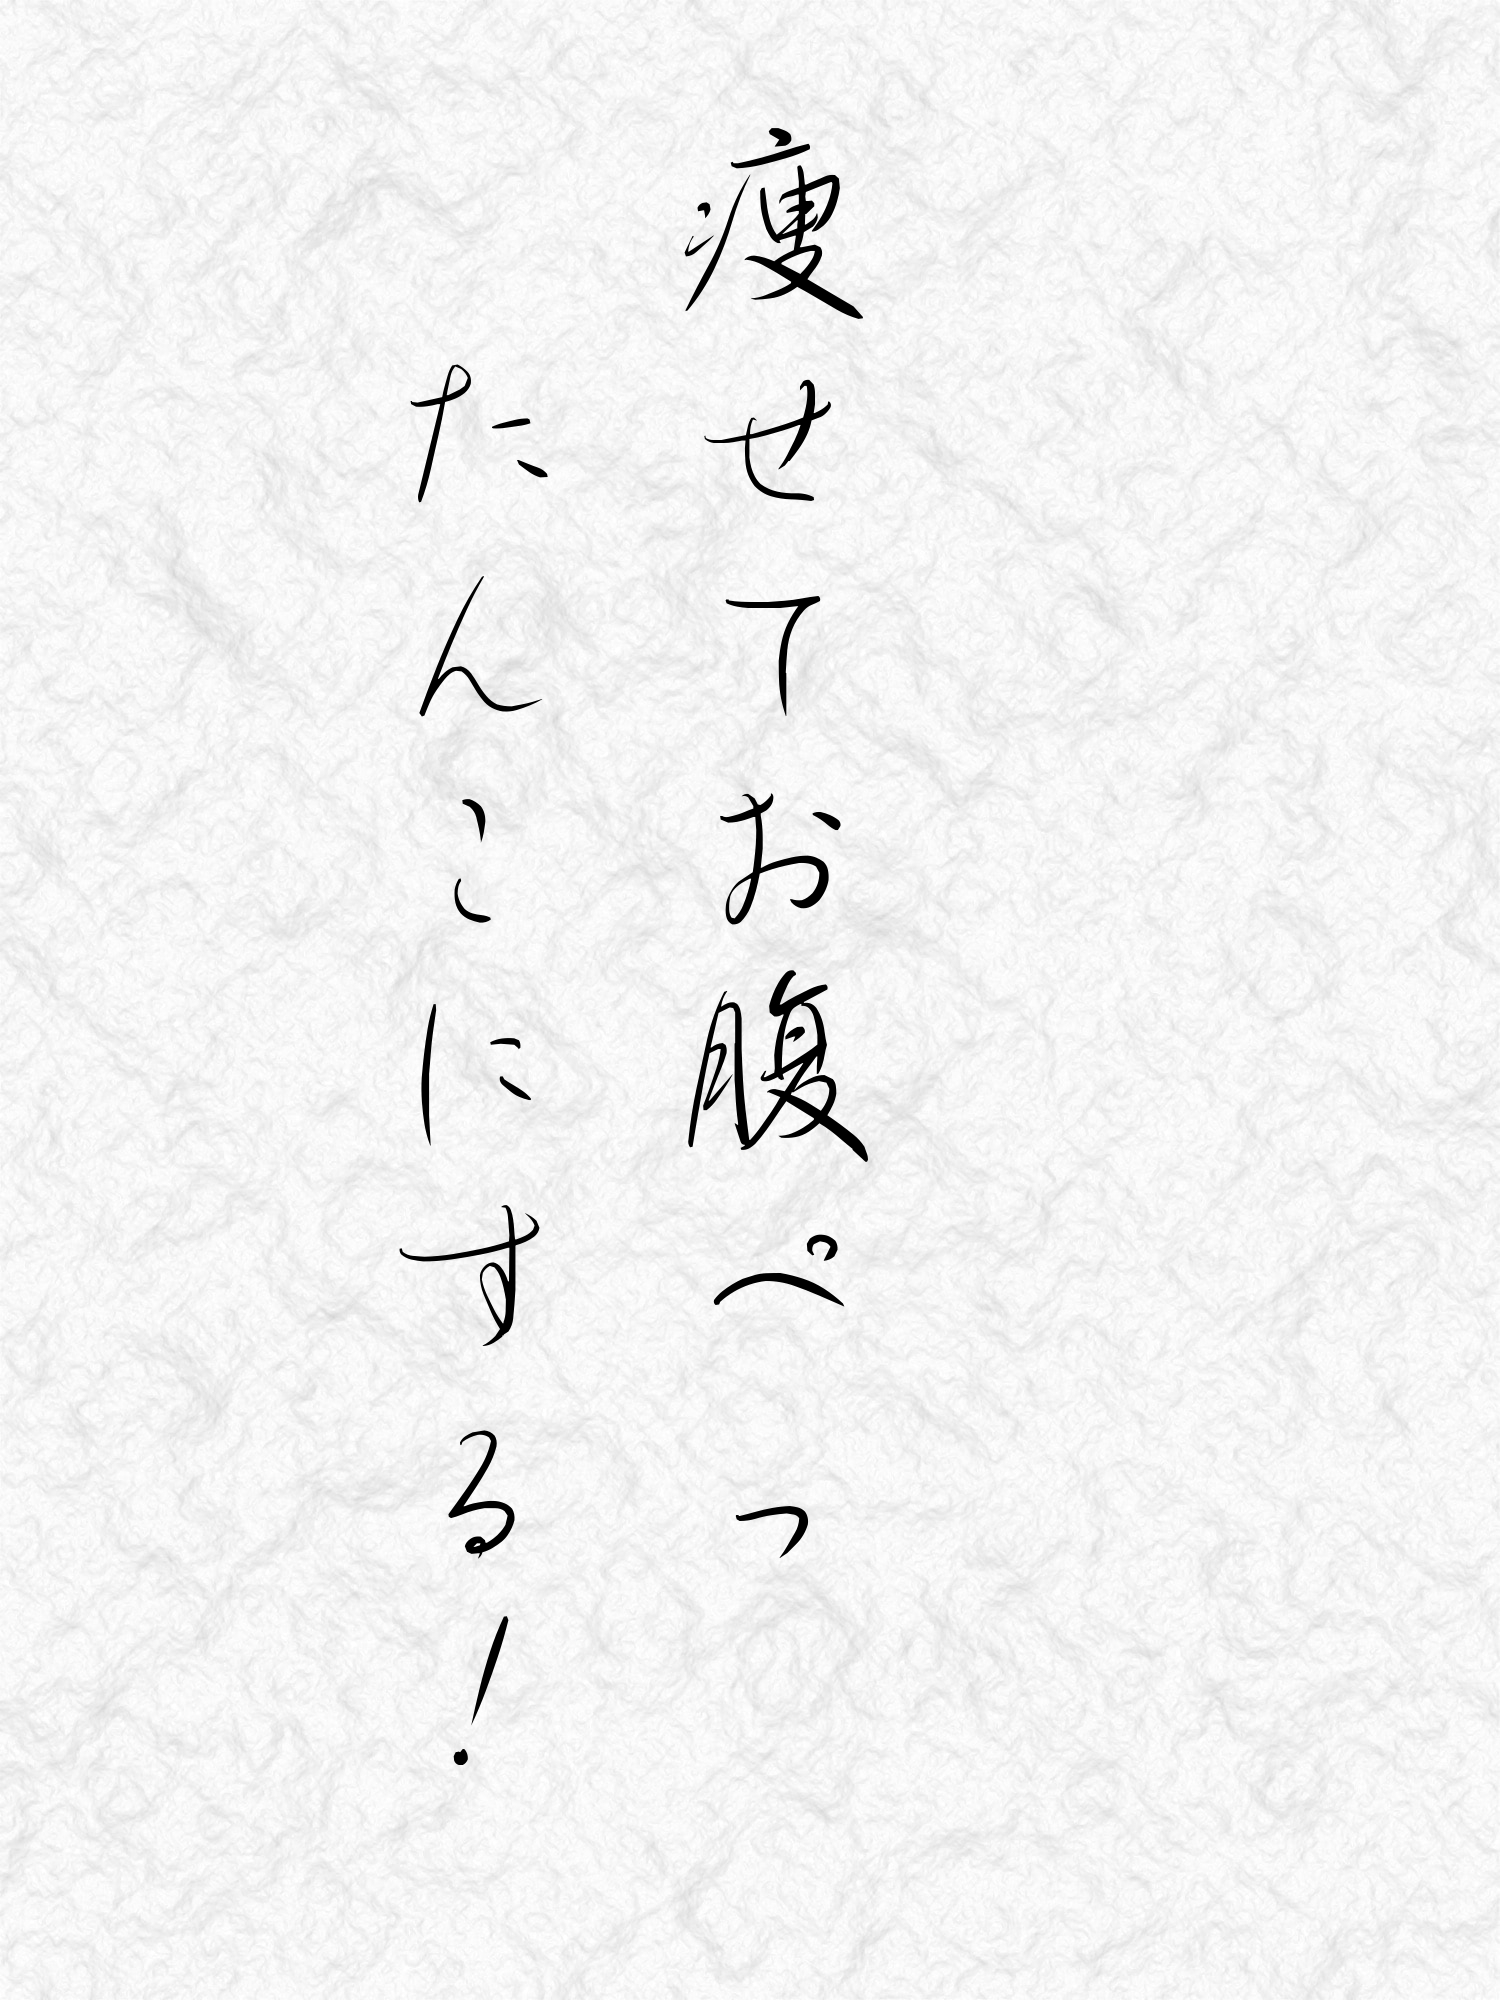 痩せてお腹ぺっ
たんこにする！